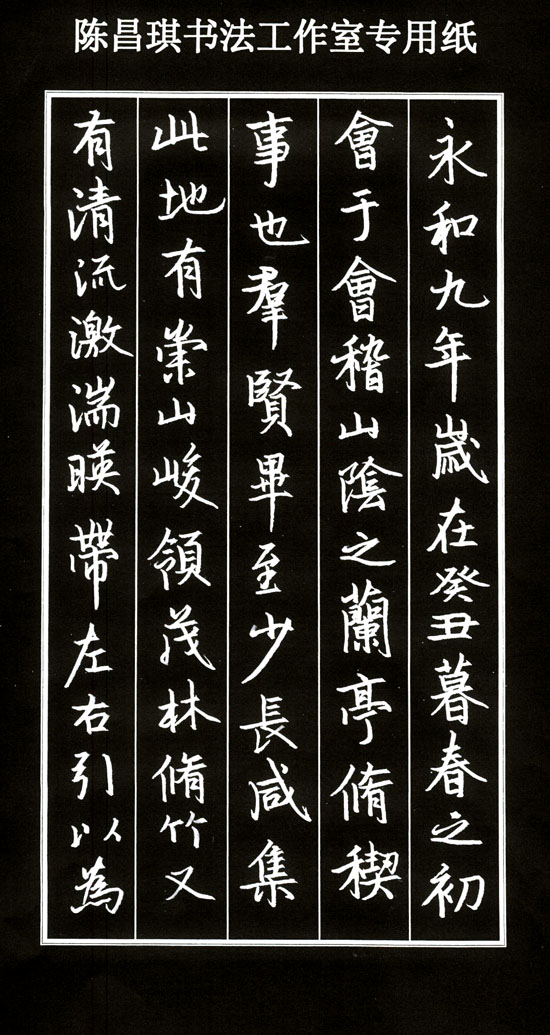 陈昌琪书法工作室专用纸
永和九年歲在癸丑暮春之初
會于會稽山陰之蘭亭脩稧
事也羣賢畢至少長咸集
此地有崇山峻領茂林脩竹又
有清流激湍暎帶左右引以為